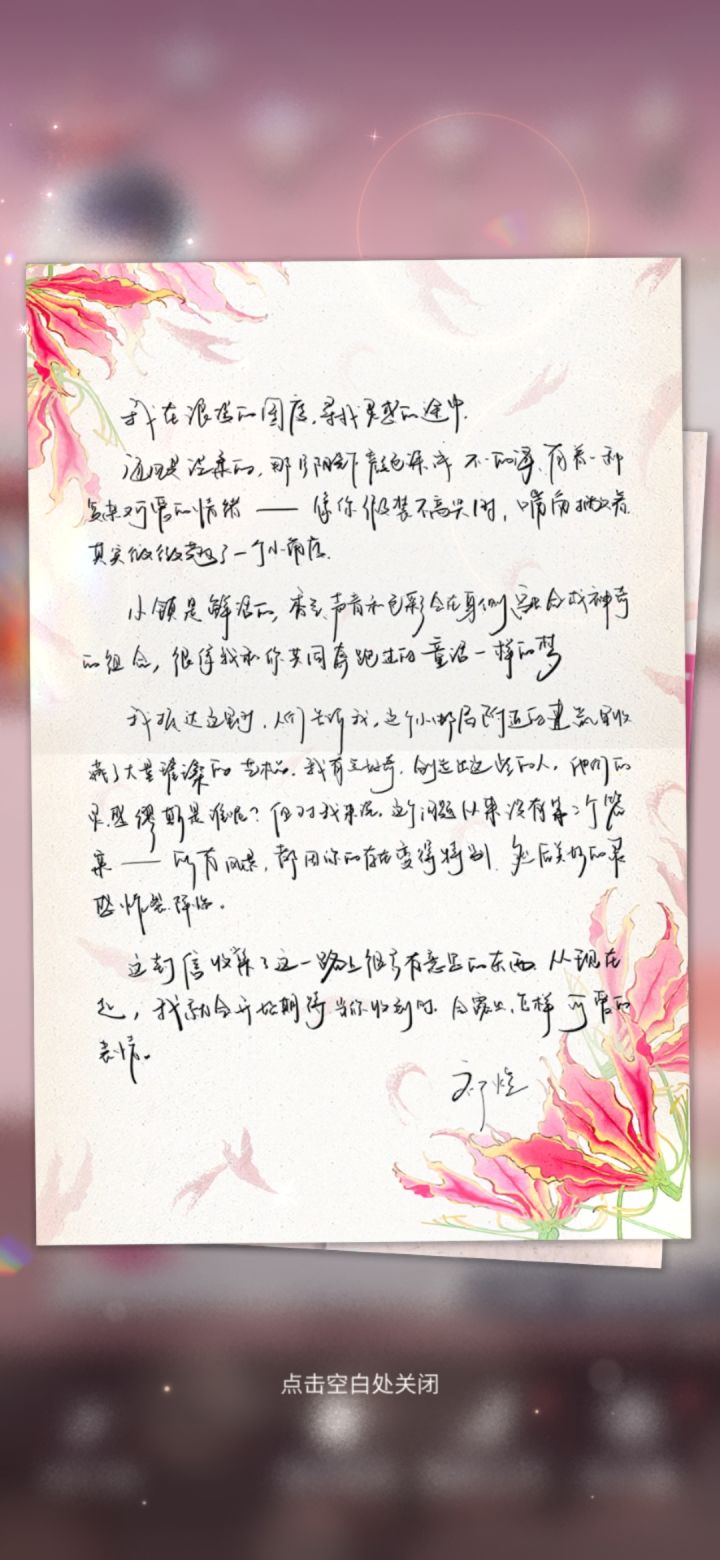 我在浪漫的国度,寻找灵感的途中.
海風是温柔的,那 阴影下 颜色深浅不一的海,有着一种
复杂可爱的情绪 —— 像你假装不高兴时,嘴角撇着
其实微微翘了一个小角度.
小镇是鲜活的, 声音和色彩会在身侧融合成神奇
的组合,很像我和你共同奔跑过的童话一样的梦
我抵达这里时,人们告诉我,这个小邮局附近的 收
藏了大量 的艺术品.我有些好奇,创造出这些的人,他们的
灵感缪斯是谁呢?但对我来说,这个问题从来没有第二个答
案 —— 所有风景,都因你的存在变得特别,然后美好的灵
感炸裂降临。
这封信收集了这一路上很多有意思的东西.从现在
起,我就会开始期待当你收到时,会露出怎样可爱的
表情。
祁煜
点击空白处关闭